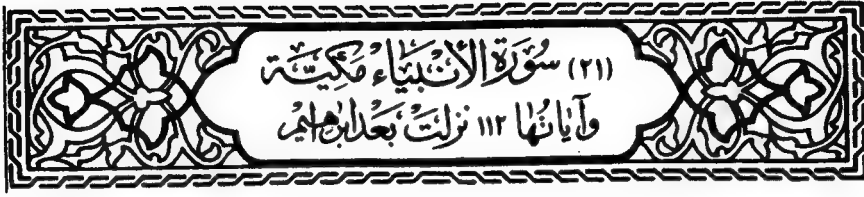 (٢١) سُورَةُ الأَنْبِيَاءِ مَكِّيَّة
وَآيَاتُهَا ١١٢ نَزَلَتْ بَعْدَ إِبْرَاهِيمَ